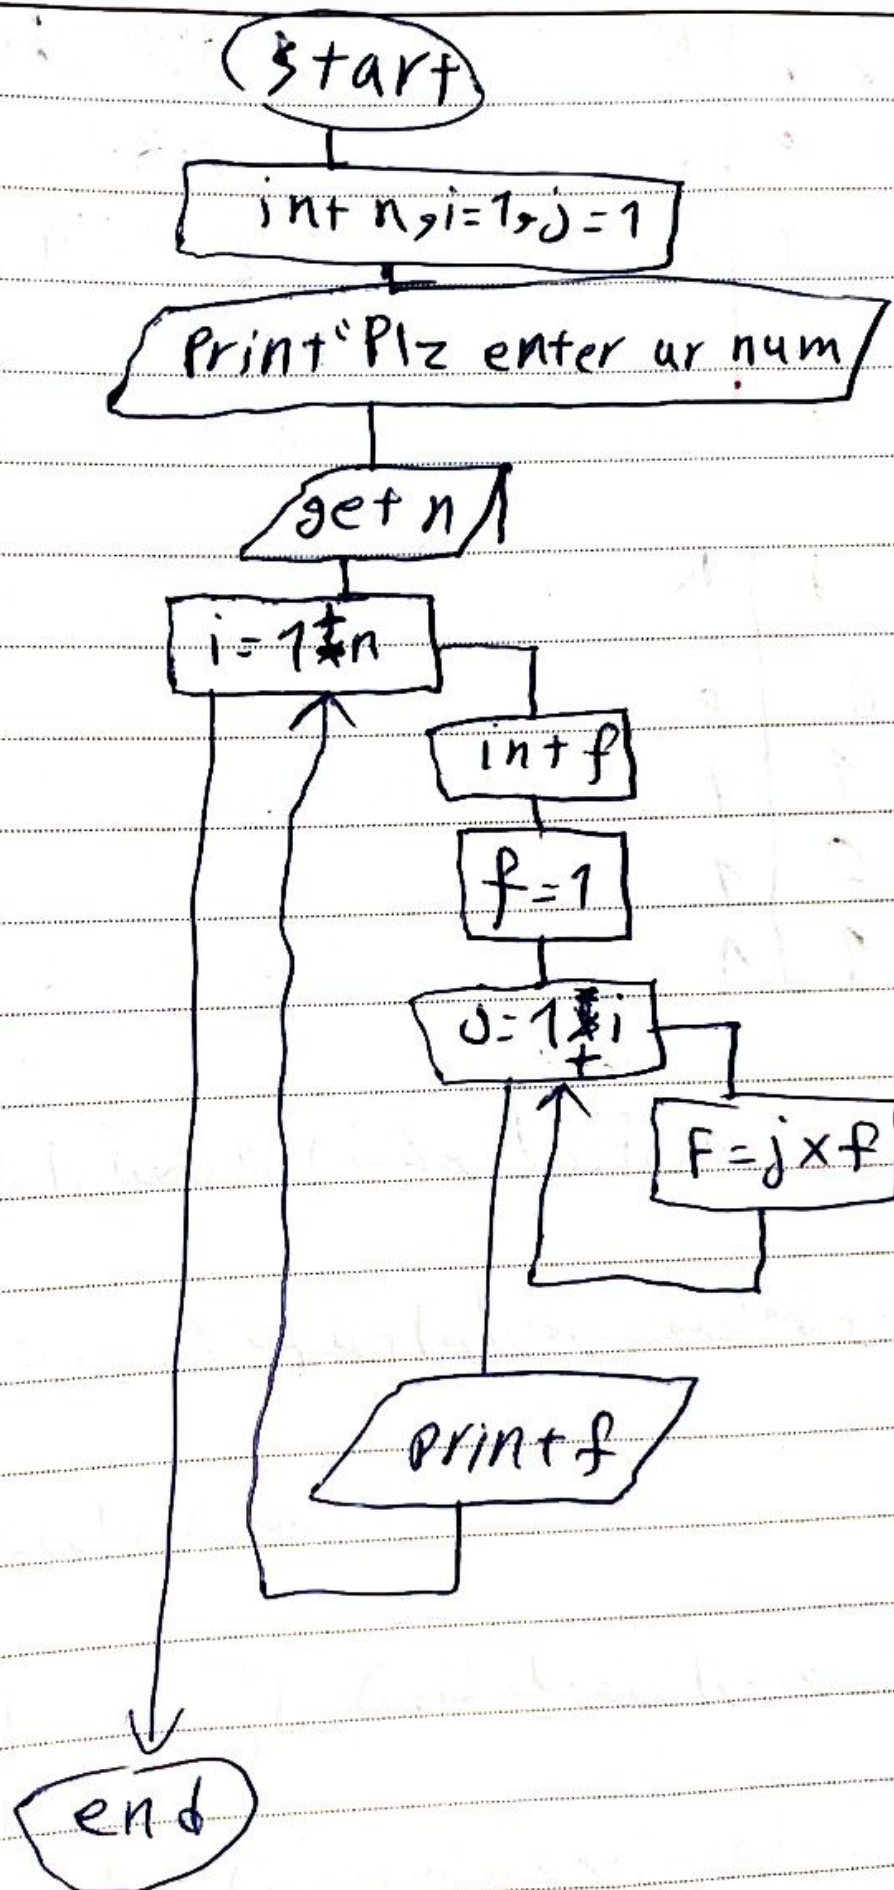 start
int n,i=1,j=1
Print"Plz enter ur num
get n
i=1 t n
int f
f=1
J=1 t i
F=j×f
print f
end